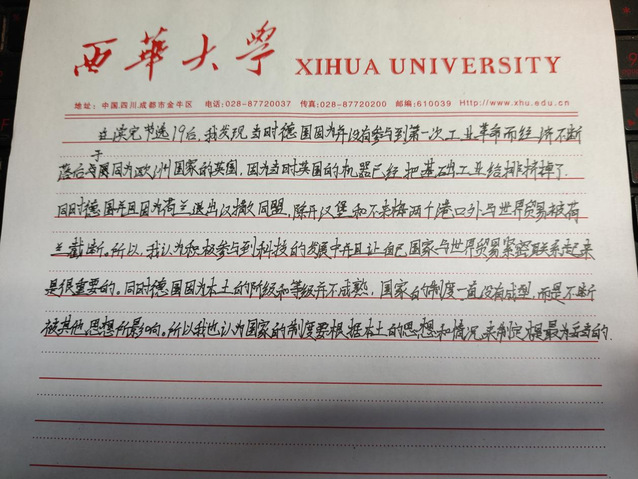 西华大学 XIHUA UNIVERSITY
地址：中国.四川.成都市金牛区 电话:028-87720037 传真:028-87720200 邮编:610039 Http://www.xhu.edu.cn
在读完节选19后，我发现当时德国因为并没有参与到第一次工业革命而经济不断
落后于同为欧洲国家的英国，因为当时英国的机器已经把基础工业给排挤掉了.
同时德国并且因为荷兰退出汉撒同盟，除开汉堡和不来梅两个港口外与世界贸易被荷
兰截断。所以，我认为积极参与到科技的发展中并且让自己国家与世界贸易紧密联系起来
是很重要的。同时德国因为本土的阶级和等级并不成熟，国家的制度一直没有成型，而是不断
被其他思想所影响。所以我也认为国家的制度要根据本土的思想和情况来制定才是最为妥当的.